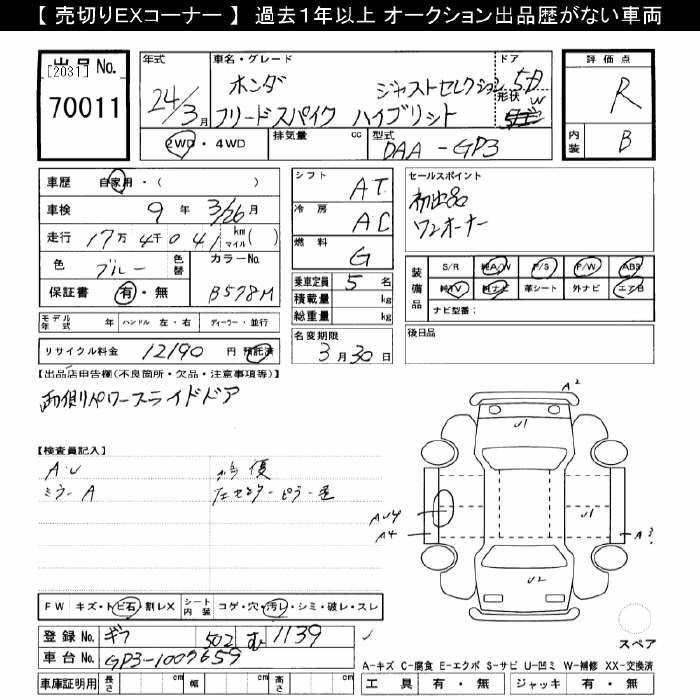 【 売切りEXコーナー 】 過去1年以上 オークション出品歴がない車両
出品No.
[2031]
70011
年式
24/3月
車名・グレード
ホンダ ジャストセレクション
フリードスパイク ハイブリット
ドア
5D
形状
W
2WD・4WD
排気量 cc
型式
DAA-GP3
評価点
R
内装
B
車歴 自家用・( )
車検 9年 3/26月
走行 17万4千041 km マイル( )
色 ブルー
色替
カラーNo.
B578M
保証書 有・無
モデル年式 年 ハンドル 左・右 ディーラー・並行
リサイクル料金 12190 円 預託済
シフト AT
冷房 AC
燃料 G
乗車定員 5 名
積載量 kg
総重量 kg
名変期限
3月30日
セールスポイント
初出品
ワンオーナー
装備品
S/R 純A/W P/S P/W ABS
純TV 純ナビ 革シート 外ナビ エアB
ナビ型番:
後日品
【出品店申告欄(不良箇所・欠品・注意事項等)】
両側パワースライドドア
【検査員記入】
A・U
ミラーA
左センターピラー
FW キズ・トビ石・割レX シート内装 コゲ・穴・汚レ・シミ・破レ・スレ
登録No. ギフ 502 む 1139
車台No. GP3-1007659
車庫証明用 長さ cm 幅 cm 高さ cm
A2
U1
AU4
A4
U1
A3
U2
スペア
A-キズ C-腐食 E-エクボ S-サビ U-凹ミ W-補修 XX-交換済
工具 有・無 ジャッキ 有・無